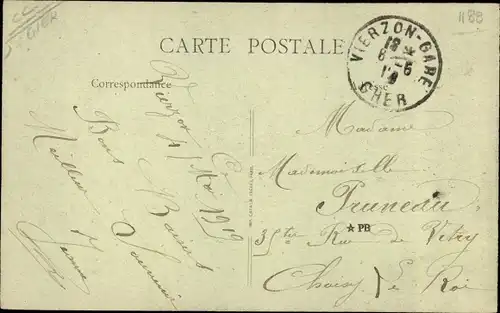 1188
CHER
CARTE POSTALE
VIERZON-GARE
18 *
8 - 6
19
CHER
Correspondance
Adresse
Vierzon
Mai 1919
Bons Baisers
Meilleur Souvenir
Jeanne
Madame
Mademoiselle
Pruneau
35 Rue de Vitry
★PB
Choisy le Roi